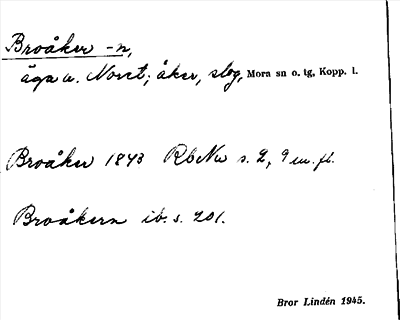 Broåker -n,
äga u. Noret; åker, slog, Mora sn o. tg, Kopp. l.
Broåker 1843 RbNw s. 2, 9 m. fl.
Broåkern ib. s. 201.
Bror Lindén 1945.